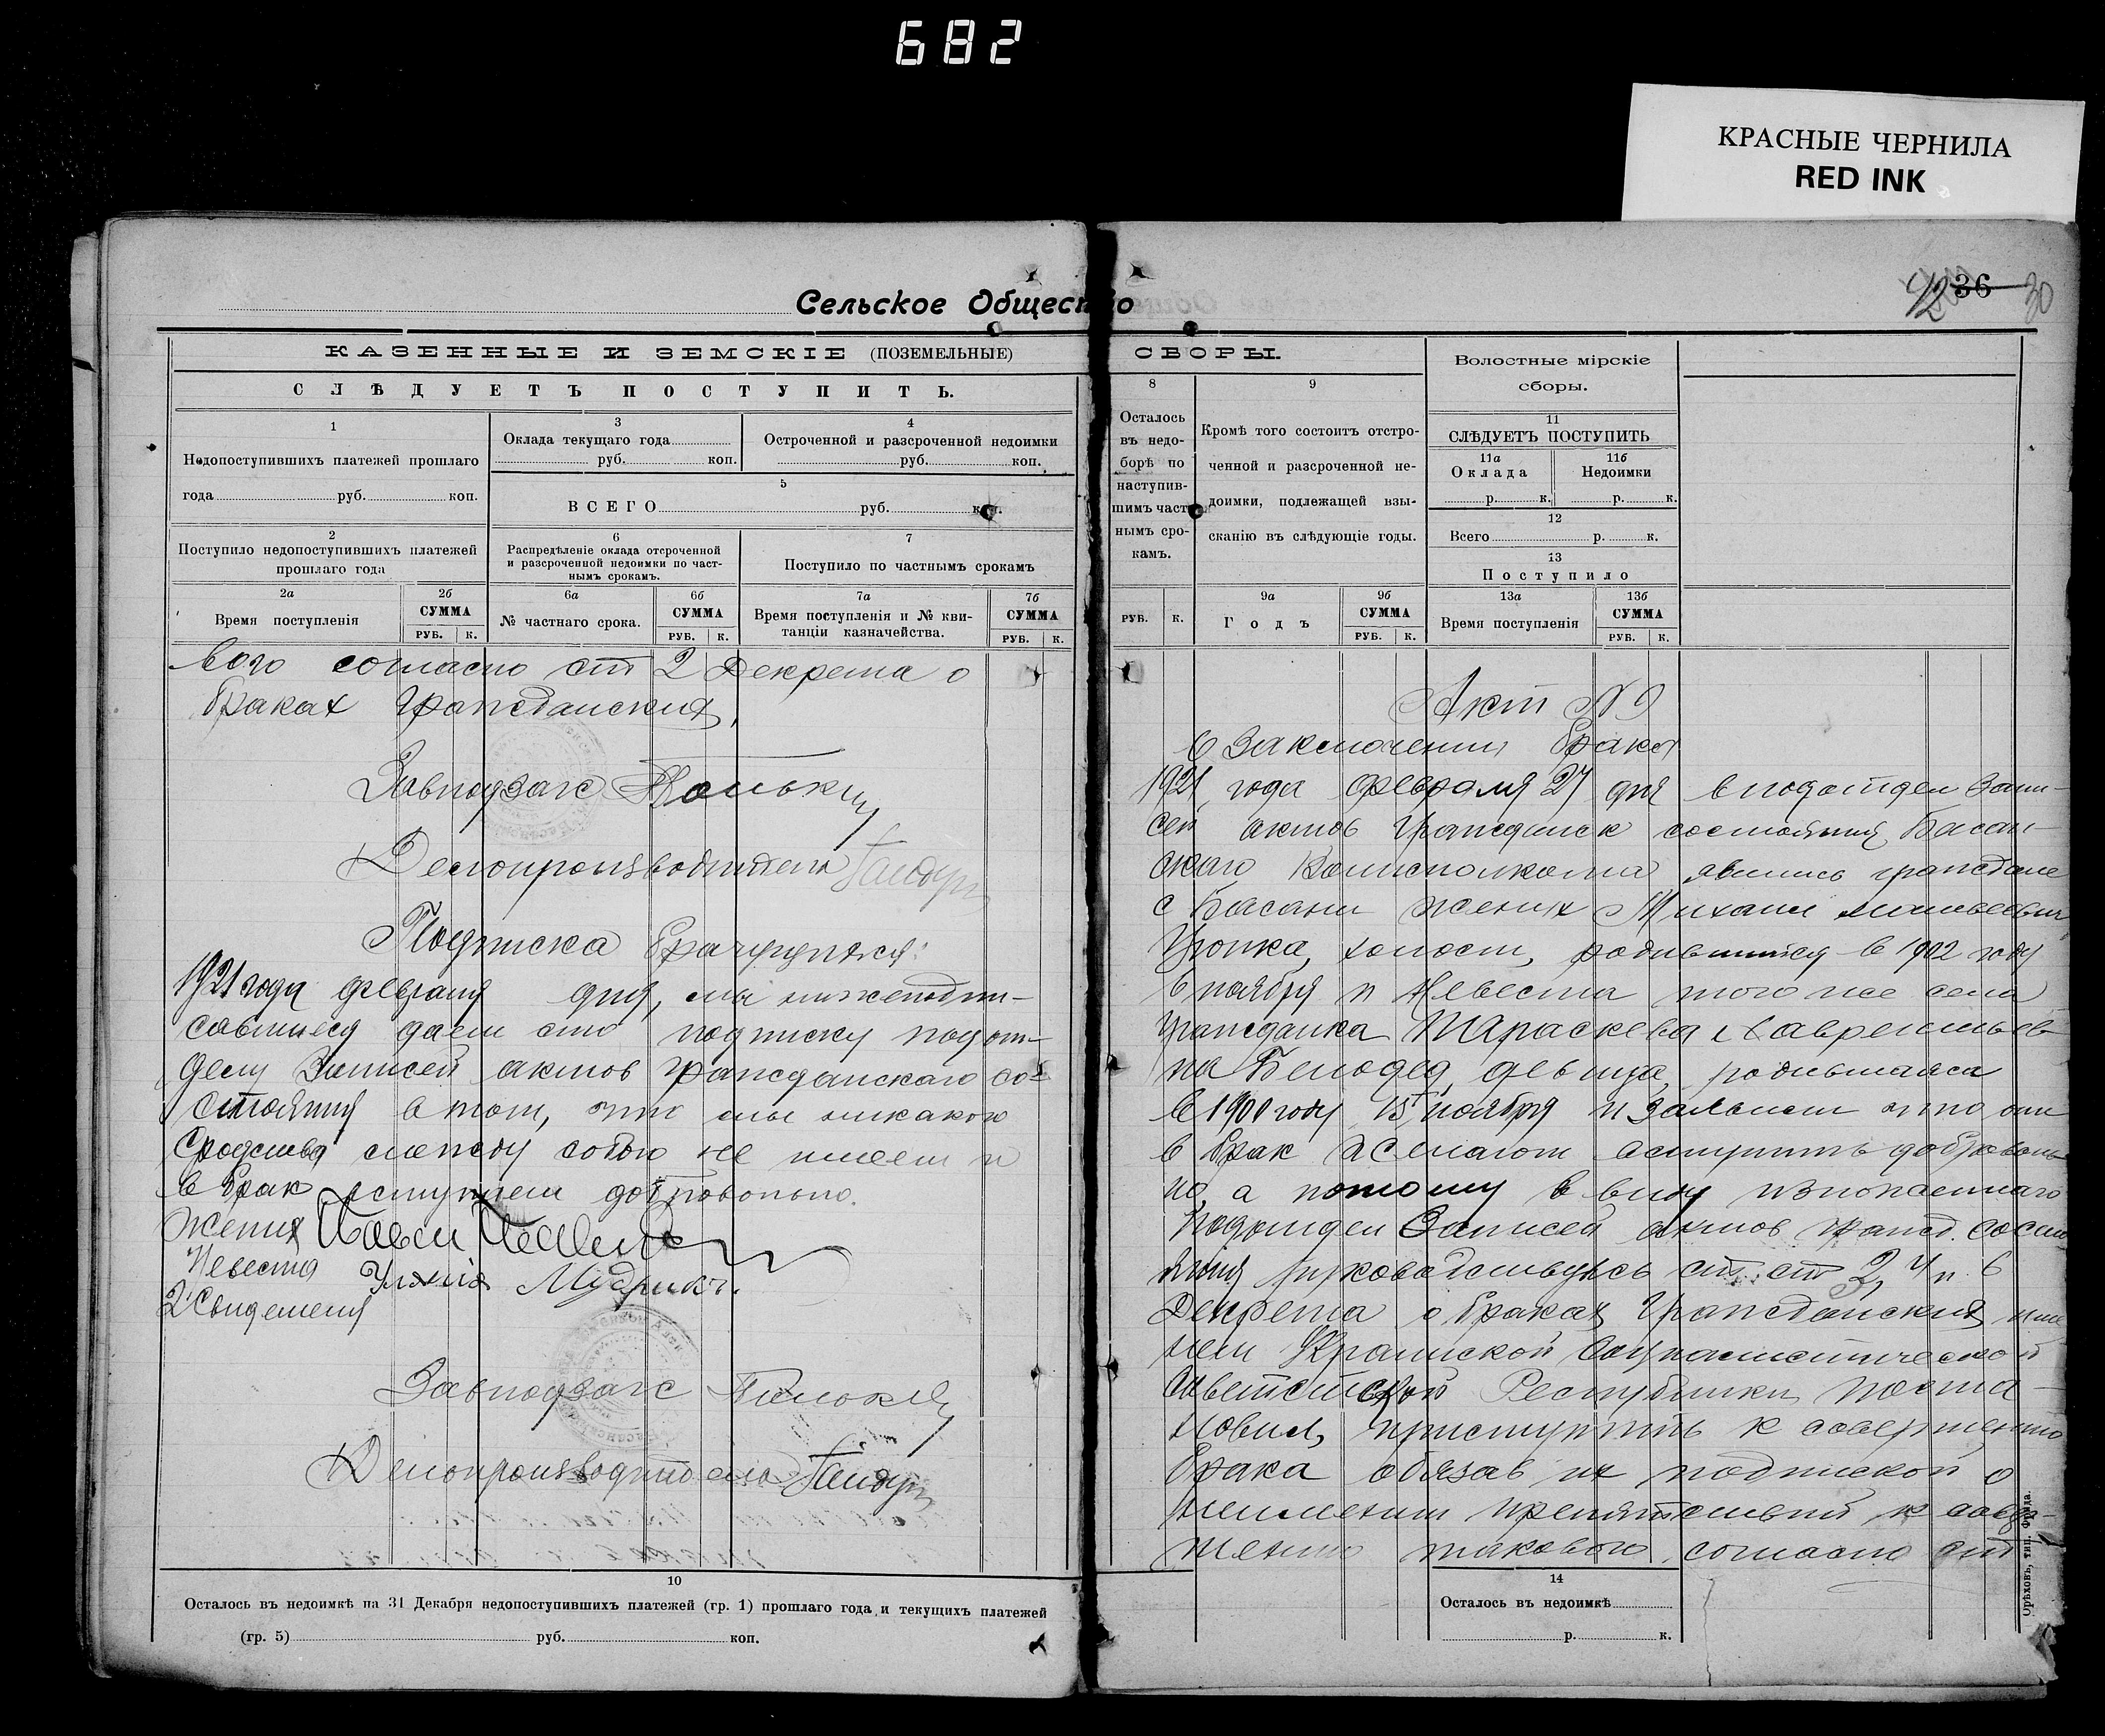 682
КРАСНЫЕ ЧЕРНИЛА
RED INK
Сельское Общество
42 36 30
КАЗЕННЫЕ И ЗЕМСКІЕ (ПОЗЕМЕЛЬНЫЕ)
СЛѢДУЕТЪ ПОСТУПИТЬ.
1
Недопоступившихъ платежей прошлаго
года руб. коп.
3
Оклада текущаго года
руб. коп.
4
Остроченной и разсроченной недоимки
руб. коп.
5
ВСЕГО руб. коп.
2
Поступило недопоступившихъ платежей
прошлаго года
6
Распредѣленіе оклада отсроченной
и разсроченной недоимки по част-
нымъ срокамъ.
7
Поступило по частнымъ срокамъ
2а
Время поступленія
2б
СУММА
РУБ. К.
6а
№ частнаго срока.
6б
СУММА
РУБ. К.
7а
Время поступленія и № кви-
танціи казначейства.
7б
СУММА
РУБ. К.
вого согласно ст 2 Декрета о
браках Гражданских,
Завподзагс
Делопроизводитель
Подписка брачущихся:
1921 года февраля дня, мы нижеподпи-
савшиеся даем сию подписку подот-
делу Записей актов гражданского со-
стояния в том, что мы никакого
сродства между собою не имеем и
в брак вступаем добровольно.
Жених Павел
Невеста Улянія Мудрикъ.
2 Свидетеля
Завподзагс
Делопроизводитель
10
Осталось въ недоимкѣ на 31 Декабря недопоступившихъ платежей (гр. 1) прошлаго года и текущихъ платежей
(гр. 5) руб. коп.
СБОРЫ.
8
Осталось
въ недо-
борѣ по
наступив-
шимъ част
нымъ сро-
камъ.
РУБ. К.
9
Кромѣ того состоитъ отстро-
ченной и разсроченной не-
доимки, подлежащей взы-
сканію въ слѣдующіе годы.
9а
Годъ
9б
СУММА
РУБ. К.
Волостные мірскіе
сборы.
11
СЛѢДУЕТЪ ПОСТУПИТЬ
11а
Оклада
р. к.
11б
Недоимки
р. к.
12
Всего р. к.
13
Поступило
13а
Время поступленія
13б
СУММА
РУБ. К.
Акт N 9
О Заключении брака
1921 года февраля 27 дня в подотдел Запи-
сей актов Граждинск состояния Басан-
ского Волисполкома явились граждане
с Басани жених Михаил
холост, родившийся в 1902 году
6 ноября и Невеста того же села
гражданка Параскева Лаврентьев-
на Белодед, девица, родившаяся
в 1900 году 15 ноября и заявляет что они
в брак желают вступить добровольн
но, а потому в виду изложенного
Подотдел Записей актов гражд. состо
яния руководствуясь ст. ст 2, 4 и 6
Декрета о браках Гражданских име
нем Украинской Социалистической
Советской Республики поста-
новил, приступить к совершению
брака обязав их подпиской о
неимении препятствий к совер-
шению такового согласно
14
Осталось въ недоимкѣ
р. к.
Орѣховъ, тип. Фрида.